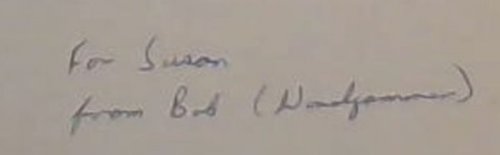 For Susan
from Bob (Windjammer)